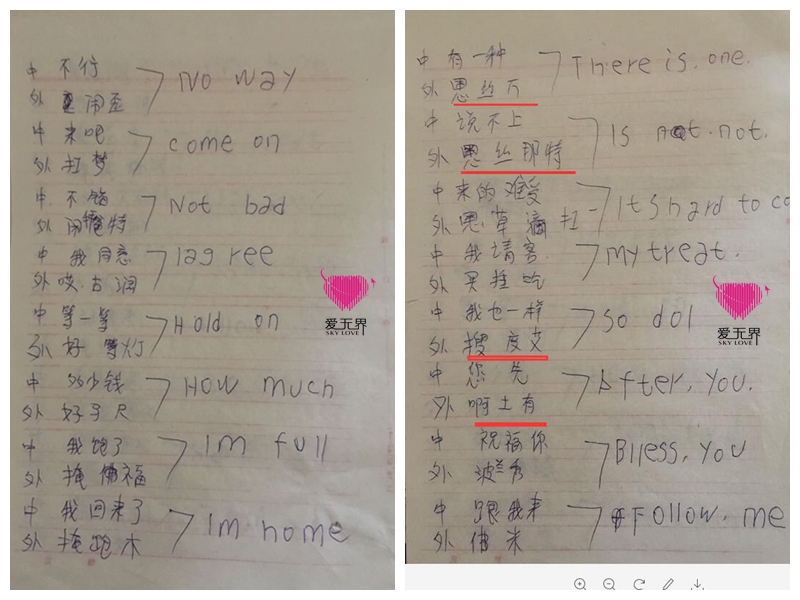 中 不行
No way
外 闹歪
中 来吧
come on
外 扛梦
中 不错
Not bad
外 闹掩特
中 我同意
Iag ree
外 哎古润
中 等一等
Hold on
外 好等灯
中 多少钱
How much
外 好马尺
中 我饱了
Im full
外 掩佛福
中 我回来了
Im home
外 掩跑木
爱无界
SKY LOVE
中 有一种
There is. one.
外 恩丝万
中 说不上
Is not. not.
外 恩丝那特
中 来的难受
Its hard to co
外 恩草滴扛
中 我请客
my treat.
外 买挂吃
中 我也一样
so doI
外 搜度艾
中 您先
After, You.
外 啊土有
中 祝福你
Blless, you
外 波兰秀
中 跟我来
Follow. me
外 佛米
爱无界
SKY LOVE